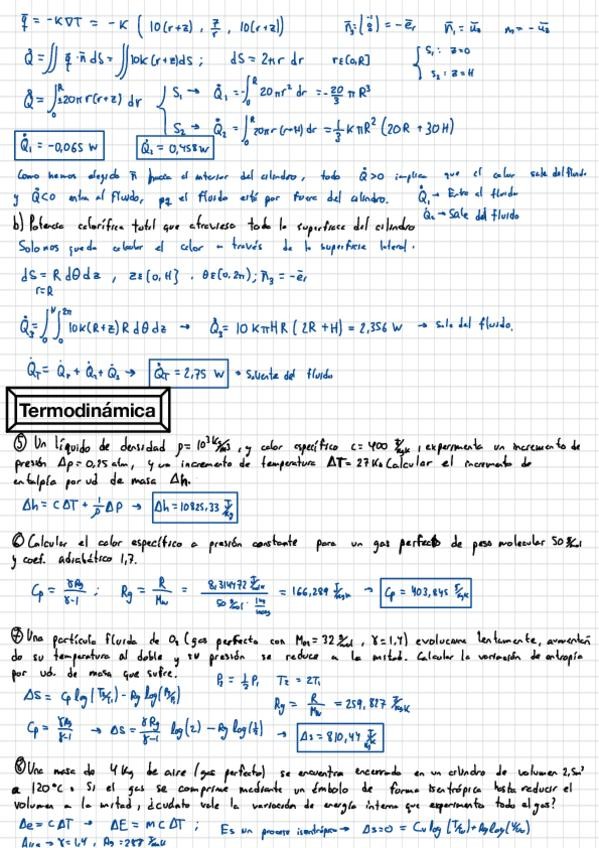 q̄ = -K∇T = -K ( 10(r+z), z/r, 10(r+z))   n̄₃·(⁻¹₀) = -ēr   n̄₁ = ū₃   n₂ = -ū₃
Q̇ = ∬ q̄·n̄ dS = ∬ 10K(r+z)dS ;   dS = 2πr dr   r∈[0,R]   { S₁: z=0
S₂: z=H
Q̇ = ∫₀ᴿ 20πr(r+z) dr   { S₁ → Q̇₁ = -∫₀ᴿ 20πr² dr = -20/3 πR³
S₂ → Q̇₂ = ∫₀ᴿ 20πr(r+H) dr = 1/3 KπR² (20R + 30H)
Q̇₁ = -0,065 W   Q̇₂ = 0,458 W
Como hemos elegido n̄ hacia el interior del cilindro, todo Q̇>0 implica que el calor sale del fluido
y Q̇<0 entra al fluido, pq el fluido está por fuera del cilindro. Q̇₁ → Entra al fluido
Q̇₂ → Sale del fluido
b) Potencia calorífica total que atraviesa toda la superficie del cilindro
Solo nos queda calcular el calor a través de la superficie lateral.
dS = R dθ dz , z∈[0,H] . θ∈[0,2π]; n̄₃ = -ēr
r=R
Q̇₃ = ∫₀ᴴ ∫₀²π 10K(R+z) R dθ dz → Q̇₃ = 10KπHR (2R + H) = 2,356 W → sale del fluido.
Q̇T = Q̇₁ + Q̇₂ + Q̇₃ → Q̇T = 2,75 W • Saliente del fluido
Termodinámica
⑤ Un líquido de densidad ρ = 10³ Kg/m³, y calor específico c = 400 J/KgK, experimenta un incremento de
presión Δp = 0,25 atm, y un incremento de temperatura ΔT = 27 K. Calcular el incremento de
entalpía por ud de masa Δh.
Δh = CΔT + 1/ρ ΔP → Δh = 10825,33 J/Kg
⑥ Calcular el calor específico a presión constante para un gas perfecto de peso molecular 50 g/mol
y coef. adiabático 1,7.
Cp = γRg/γ-1 ; Rg = R/Mm = 8,314472 J/molK / 50 g/mol · 1kg/1000g = 166,289 J/KgK → Cp = 403,845 J/KgK
⑦ Una partícula fluida de O₂ (gas perfecto con Mm = 32 g/mol, γ = 1,4) evoluciona lentamente, aumentan
do su temperatura al doble y su presión se reduce a la mitad. Calcular la variación de entropía
por ud. de masa que sufre.   P₂ = ½P₁   T₂ = 2T₁
Δs = Cp log(T₂/T₁) - Rg log(P₂/P₁)   Rg = R/Mm = 259,827 J/KgK
Cp = γRg/γ-1 → Δs = γRg/γ-1 log(2) - Rg log(½) → Δs = 810,44 J/KgK
⑧ Una masa de 4 Kg de aire (gas perfecto) se encuentra encerrado en un cilindro de volumen 2,5m³
a 120°C. Si el gas se comprime mediante un émbolo de forma isentrópica hasta reducir el
volumen a la mitad, ¿cuánto vale la variación de energía interna que experimenta todo el gas?
Δe = CΔT → ΔE = mCΔT ;   Es un proceso isentrópico → Δs=0 = Cv log(T₂/T₁) + Rg log(V₂/V₁)
Aire → γ=1,4 , Rg = 287 J/KgK